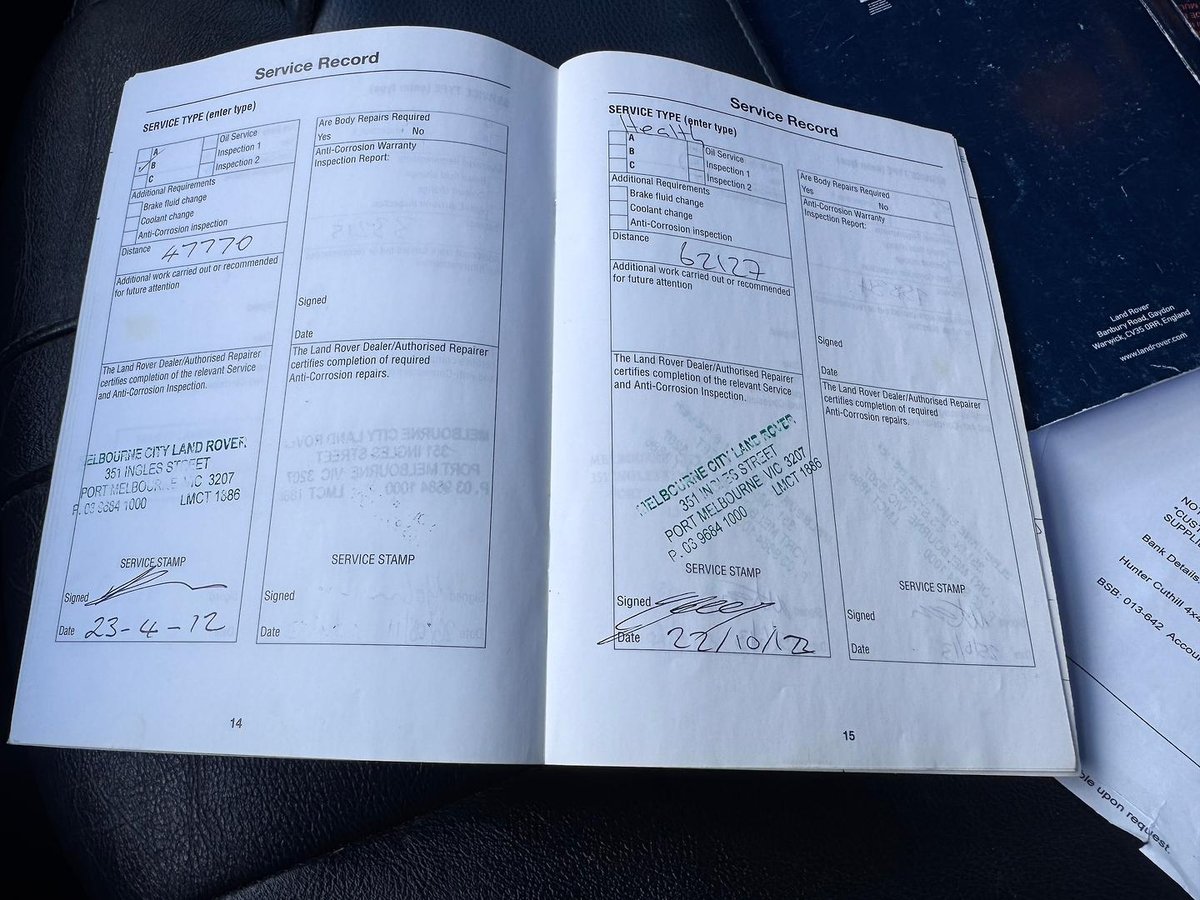 Service Record
SERVICE TYPE (enter type)
A
B
C
Oil Service
Inspection 1
Inspection 2
Additional Requirements
Brake fluid change
Coolant change
Anti-Corrosion inspection
Distance 47770
Additional work carried out or recommended
for future attention
The Land Rover Dealer/Authorised Repairer
certifies completion of the relevant Service
and Anti-Corrosion Inspection.
ELBOURNE CITY LAND ROVER
351 INGLES STREET
PORT MELBOURNE VIC 3207
P. 03 9684 1000 LMCT 1886
SERVICE STAMP
Signed
Date 23-4-12
Are Body Repairs Required
Yes No
Anti-Corrosion Warranty
Inspection Report:
Signed
Date
The Land Rover Dealer/Authorised Repairer
certifies completion of required
Anti-Corrosion repairs.
SERVICE STAMP
Signed
Date
14
Service Record
SERVICE TYPE (enter type)
Health
A
B
C
Oil Service
Inspection 1
Inspection 2
Additional Requirements
Brake fluid change
Coolant change
Anti-Corrosion inspection
Distance 62127
Additional work carried out or recommended
for future attention
The Land Rover Dealer/Authorised Repairer
certifies completion of the relevant Service
and Anti-Corrosion Inspection.
MELBOURNE CITY LAND ROVER
351 INGLES STREET
PORT MELBOURNE VIC 3207
P. 03 9684 1000 LMCT 1886
SERVICE STAMP
Signed
Date 22/10/12
Are Body Repairs Required
Yes No
Anti-Corrosion Warranty
Inspection Report:
Signed
Date
The Land Rover Dealer/Authorised Repairer
certifies completion of required
Anti-Corrosion repairs.
SERVICE STAMP
Signed
Date
15
Land Rover
Banbury Road, Gaydon
Warwick, CV35 0RR, England
www.landrover.com
"CUST
SUPPLI
Bank Details
Hunter Cuthill 4x4
BSB: 013-642 Accou
ble upon request.